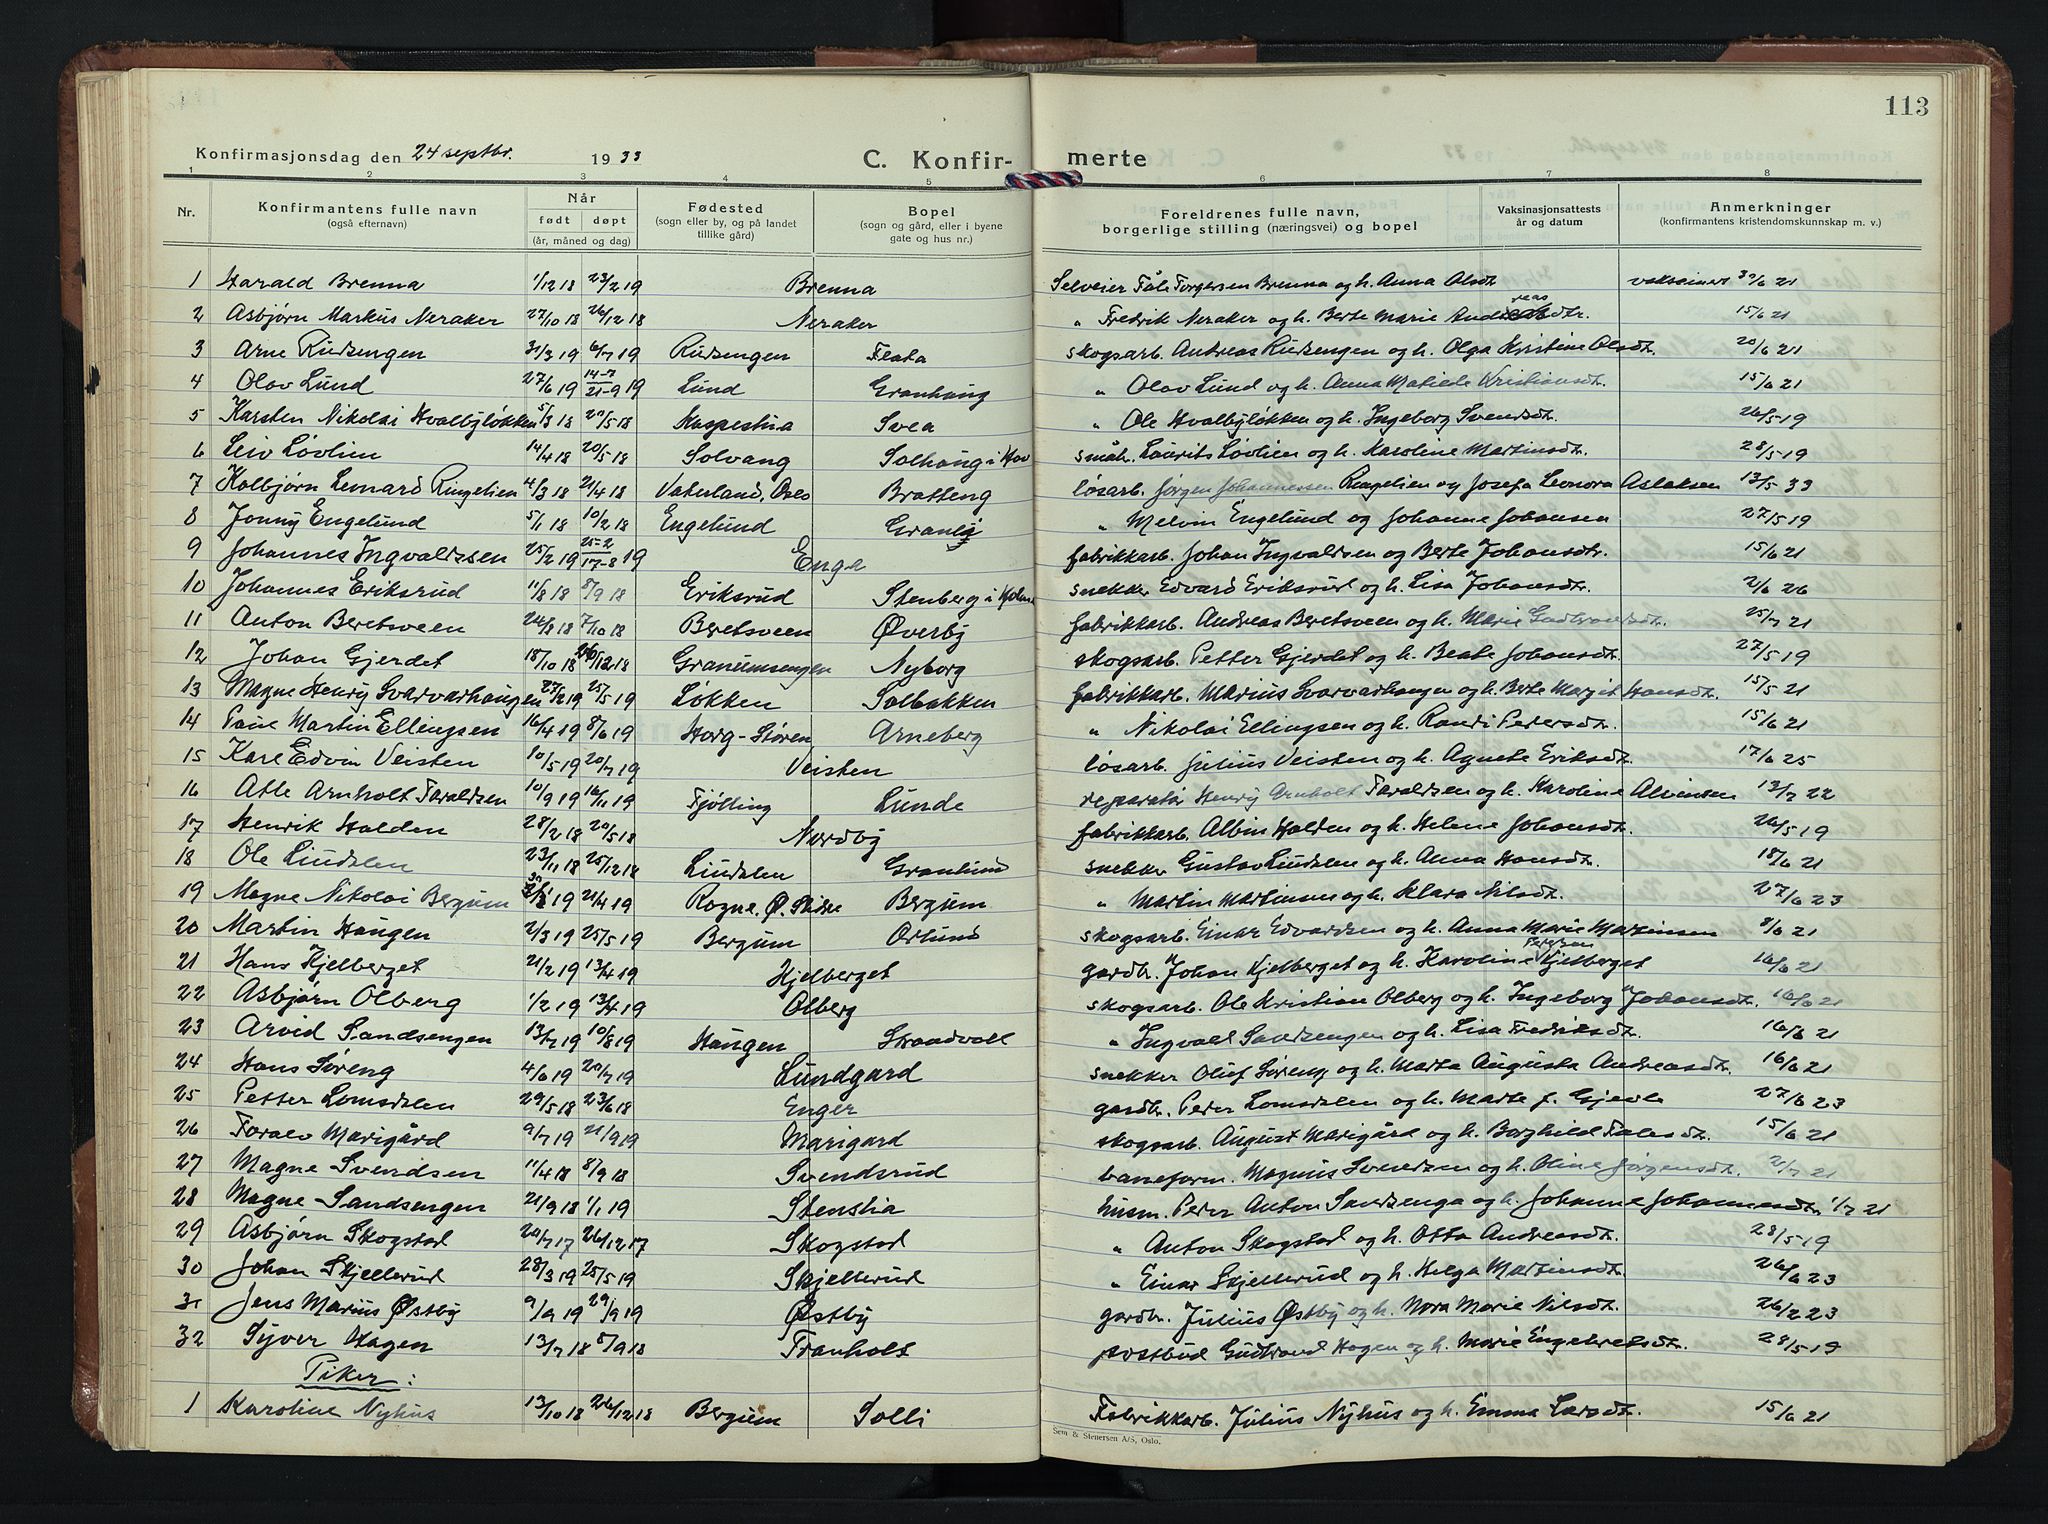 113
Konfirmasjonsdag den 24 septbr. 1933
C. Konfir- merte
1 2 3 4 5 6 7 8
Nr. Konfirmantens fulle navn (også efternavn) Når født døpt (år, måned og dag) Fødested (sogn eller by, og på landet tillike gård) Bopel (sogn og gård, eller i byene gate og hus nr.) Foreldrenes fulle navn, borgerlige stilling (næringsvei) og bopel Vaksinasjonsattests år og datum Anmerkninger (konfirmantens kristendomskunnskap m. v.)
1 Harald Brenna 1/12 18 23/2 19 Brenna Selveier Tåle Torgersen Brenna og h. Anna Olsdt. 21
2 Asbjørn Markus Neraker 27/10 18 26/12 18 Neraker " Fredrik Neraker og h. Berte Marie Andreasdtr. 15/6 21
3 Arne Rudsengen 31/3 19 6/7 19 Rudsengen Flata skogsarb. Andreas Rudsengen og h. Olga Kristine Olsdt. 20/6 21
4 Olav Lund 27/6 19 14-7 21-9 19 Lund Granhaug " Olav Lund og h. Anna Matilde Kristiansdt. 15/6 21
5 Karsten Nikolai Hvalbyløkken 5/3 18 20/5 18 Svea " Ole Hvalbyløkken og h. Ingeborg Svendsdt. 26/5 19
6 Leiv Løvlien 14/4 18 20/5 18 Solvang Solhaug i Hov småbr. Laurits Løvlien og h. Karoline Martinsdt. 28/5 19
7 Kolbjørn Lenard Ringelien 4/3 18 21/4 18 Vaterland, Oslo Bratteng løsarb. Jørgen Johannessen Ringelien og Josefa Leonora Aslaksen 13/5 33
8 Jonny Engelund 5/1 18 10/2 18 Engelund Granly " Melvin Engelund og Johanne Johansen 27/5 19
9 Johannes Ingvaldssen 25/2 19 25-2 17-8 19 Enga fabrikkarb. Johan Ingvaldsen og Berte Johansdtr. 15/6 21
10 Johannes Eriksrud 11/8 18 8/9 18 Eriksrud Stenberg i snekker Edvard Eriksrud og h. Lisa Johansdt. 2/6 26
11 Anton Beretsveen 24/8 18 7/10 18 Beretsveen Øverby fabrikkarb. Andreas Beretsveen og h. Marie Gudbrandsdt. 25/7 21
12 Johan Gjerdet 18/10 18 26/12 18 Granumsengen Nyborg skogsarb. Petter Gjerdet og h. Beate Johansdt. 27/5 19
13 Magne Henry Svarvarhaugen 27/2 19 25/5 19 Løkken Solbakken fabrikkarb. Marius Svarvarhaugen og h. Berte Margit Hansdt. 15/5 21
14 Martin Ellingsen 16/4 19 8/6 19 Horg-Støren Arneberg " Nikolai Ellingsen og h. Randi Pedersdt. 15/6 21
15 Kåre Edvin Veisten 10/5 19 20/7 19 Veisten løsarb. Julius Veisten og h. Agnete Eriksdt. 17/6 25
16 Atle Arnholt Taraldsen 10/9 19 16/11 19 Tjølling Lunde reparatør Henry Arnholt Taraldsen og h. Karoline Alvinsen 13/7 22
17 Henrik Halden 28/2 18 20/5 18 Nordby fabrikkarb. Albin Halden og h. Helene Johansdt. 26/5 19
18 Ole Lindalen 23/11 18 25/12 18 Lindalen Granlund snekker Gustav Lindalen og h. Anna Hansdt. 18/6 21
19 Magne Nikolai Bergum 19 21/4 19 Rogne, Ø. Slidre Bergum " Martin Martinsen og h. Klara Nilsdt. 27/6 23
20 Martin Haugen 2/3 19 25/5 19 Bergum Orlund skogsarb. Einar Edvardsen og h. Anna Marie Martinsen 8/6 21
21 Hans Kjelberget 21/2 19 13/4 19 Kjelberget gardbr. Johan Kjelberget og h. Karoline Kjelberget 16/6 21
22 Asbjørn Olberg 1/2 19 13/4 19 Olberg skogsarb. Ole Kristian Olberg og h. Ingeborg Johansdt. 16/6 21
23 Arvid Sandsengen 13/7 19 10/8 19 Haugen Strandvoll " Ingvald Sandsengen og h. Lisa Fredriksdt. 16/6 21
24 Hans Søreng 4/6 19 20/7 19 Lundgard snekker Oluf Søreng og h. Marta Augusta Andreasdt. 16/6 21
25 Petter Lomsdalen 29/5 18 23/6 18 Enger gardbr. Peder Lomsdalen og h. Marte f. Gjevle 27/6 23
26 Toralv Marigård 9/7 19 21/9 19 Marigard skogsarb. August Marigård og h. Borghild Talesdt. 15/6 21
27 Magne Svendsen 11/4 18 8/9 18 Svendsrud baneform. Magnus Svendsen og h. Oline Jørgensdt. 2/7 21
28 Magne Sandsengen 21/9 18 1/1 19 Stenslia husm. Peder Anton Sandsenga og h. Johanne Johannesdt. 1/7 21
29 Asbjørn Skogstad 20/7 17 26/12 17 Skogstad " Anton Skogstad og h. Otta Andreasdt. 28/5 19
30 Johan Skjellerud 28/3 19 25/5 19 Skjellerud " Einar Skjellerud og h. Helga Martinsdt. 26/6 23
31 Jens Marius Østby 9/9 19 29/9 19 Østby gardbr. Julius Østby og h. Nora Marie Nilsdt. 26/2 23
32 Syver Hagen 13/7 18 8/9 18 Framholt postbud Gudbrand Hagen og h. Marie Engebretsdt. 28/5 19
Piker:
1 Karoline Nyhus 13/10 18 26/12 18 Bergum Solli Fabrikkarb. Julius Nyhus og h. Emma Larsdt. 15/6 21
Sem & Stenersen A/S, Oslo.